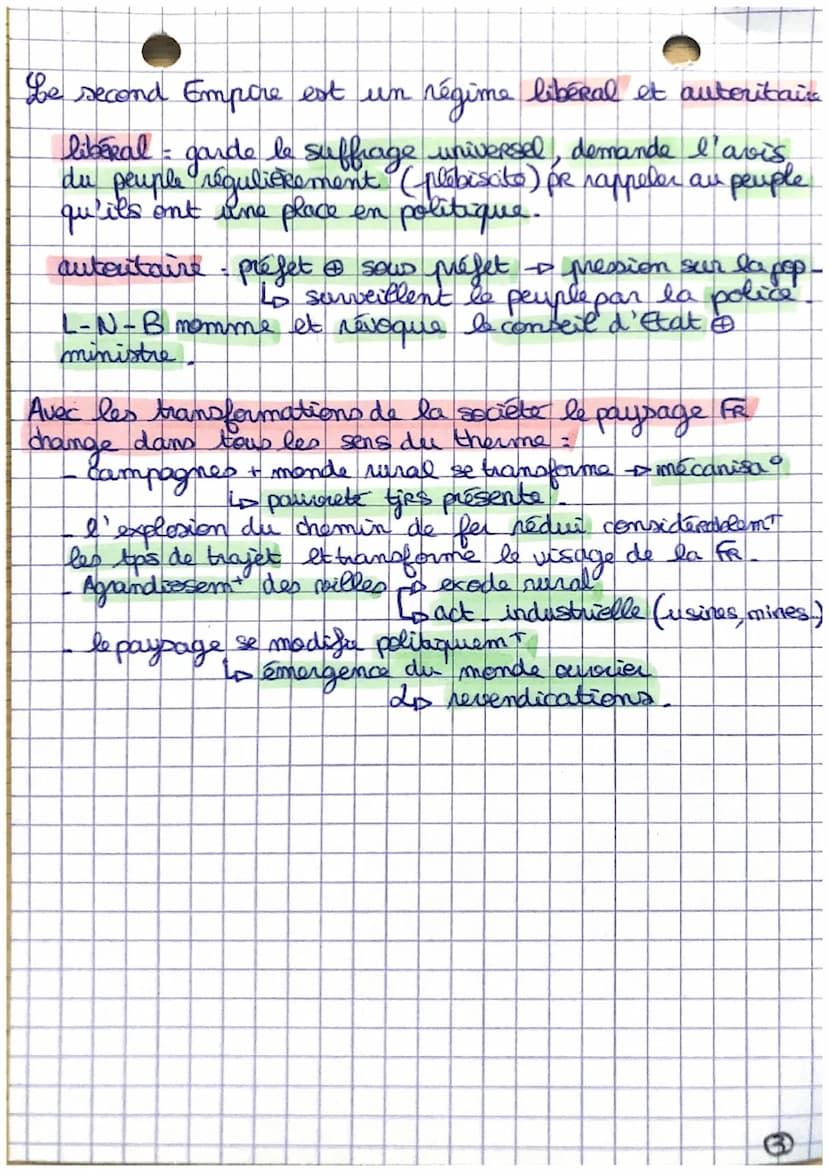 Le second Empire est un régime libéral et autoritaire
libéral = garde le suffrage universel, demande l'avis
du peuple régulièrement (plébiscite) pr rappeler au peuple
qu'ils ont une place en politique.
autoritaire - préfet ⊕ sous préfet → pression sur la pop.
↳ surveillent le peuple par la police.
L-N-B nomme et révoque le conseil d'Etat ⊕
ministre.
Avec les transformations de la société le paysage FR
change dans tous les sens du therme :
- Campagnes + monde rural se transforme → mécanisa°
↳ pauvreté tjrs présente.
- l'explosion du chemin de fer rédui considérablemt
les tps de trajet et transforme le visage de la FR.
- Agrandissemt des villes ↱ exode rural
↳ act. industrielle (usines, mines.)
- le paysage se modifie politiquemt
↳ émergence du monde ouvrier
↳ revendications.
3